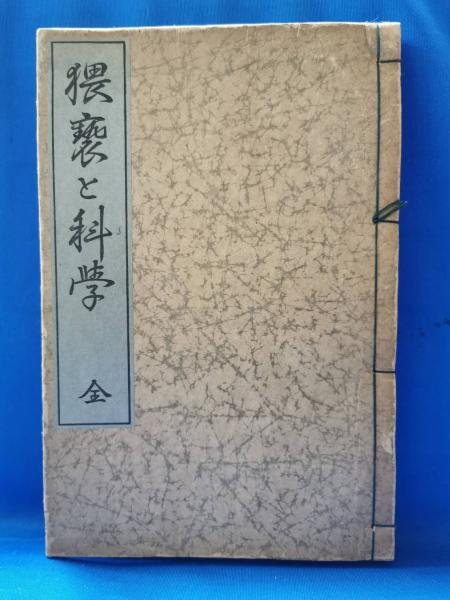 猥褻と科学
全